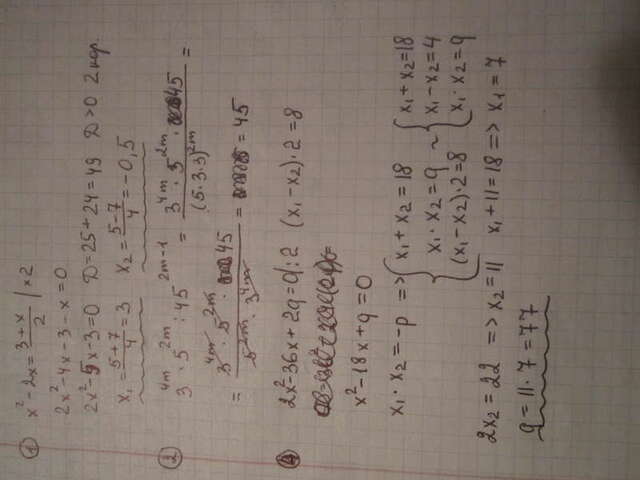 ① x² - 2x = 3+x/2 | × 2
2x² - 4x - 3 - x = 0
2x² - 5x - 3 = 0 D = 25 + 24 = 49 D > 0 2 кор.
x₁ = 5+7/4 = 3 x₂ = 5-7/4 = -0,5
② 3^4m · 5^2m : 45^2m-1 = 3^4m · 5^2m · 45/(5·3·3)^2m =
= 3^4m · 5^2m · 45/5^2m · 3^4m = 45
④ 2x² - 36x + 2q = 0 |:2 (x₁ - x₂) · 2 = 8
x² - 18x + q = 0
x₁ · x₂ = -p => { x₁ + x₂ = 18 x₁ · x₂ = q (x₁ - x₂) · 2 = 8 ~ { x₁ + x₂ = 18 x₁ - x₂ = 4 x₁ · x₂ = q
2x₂ = 22 => x₂ = 11 x₁ + 11 = 18 => x₁ = 7
q = 11 · 7 = 77